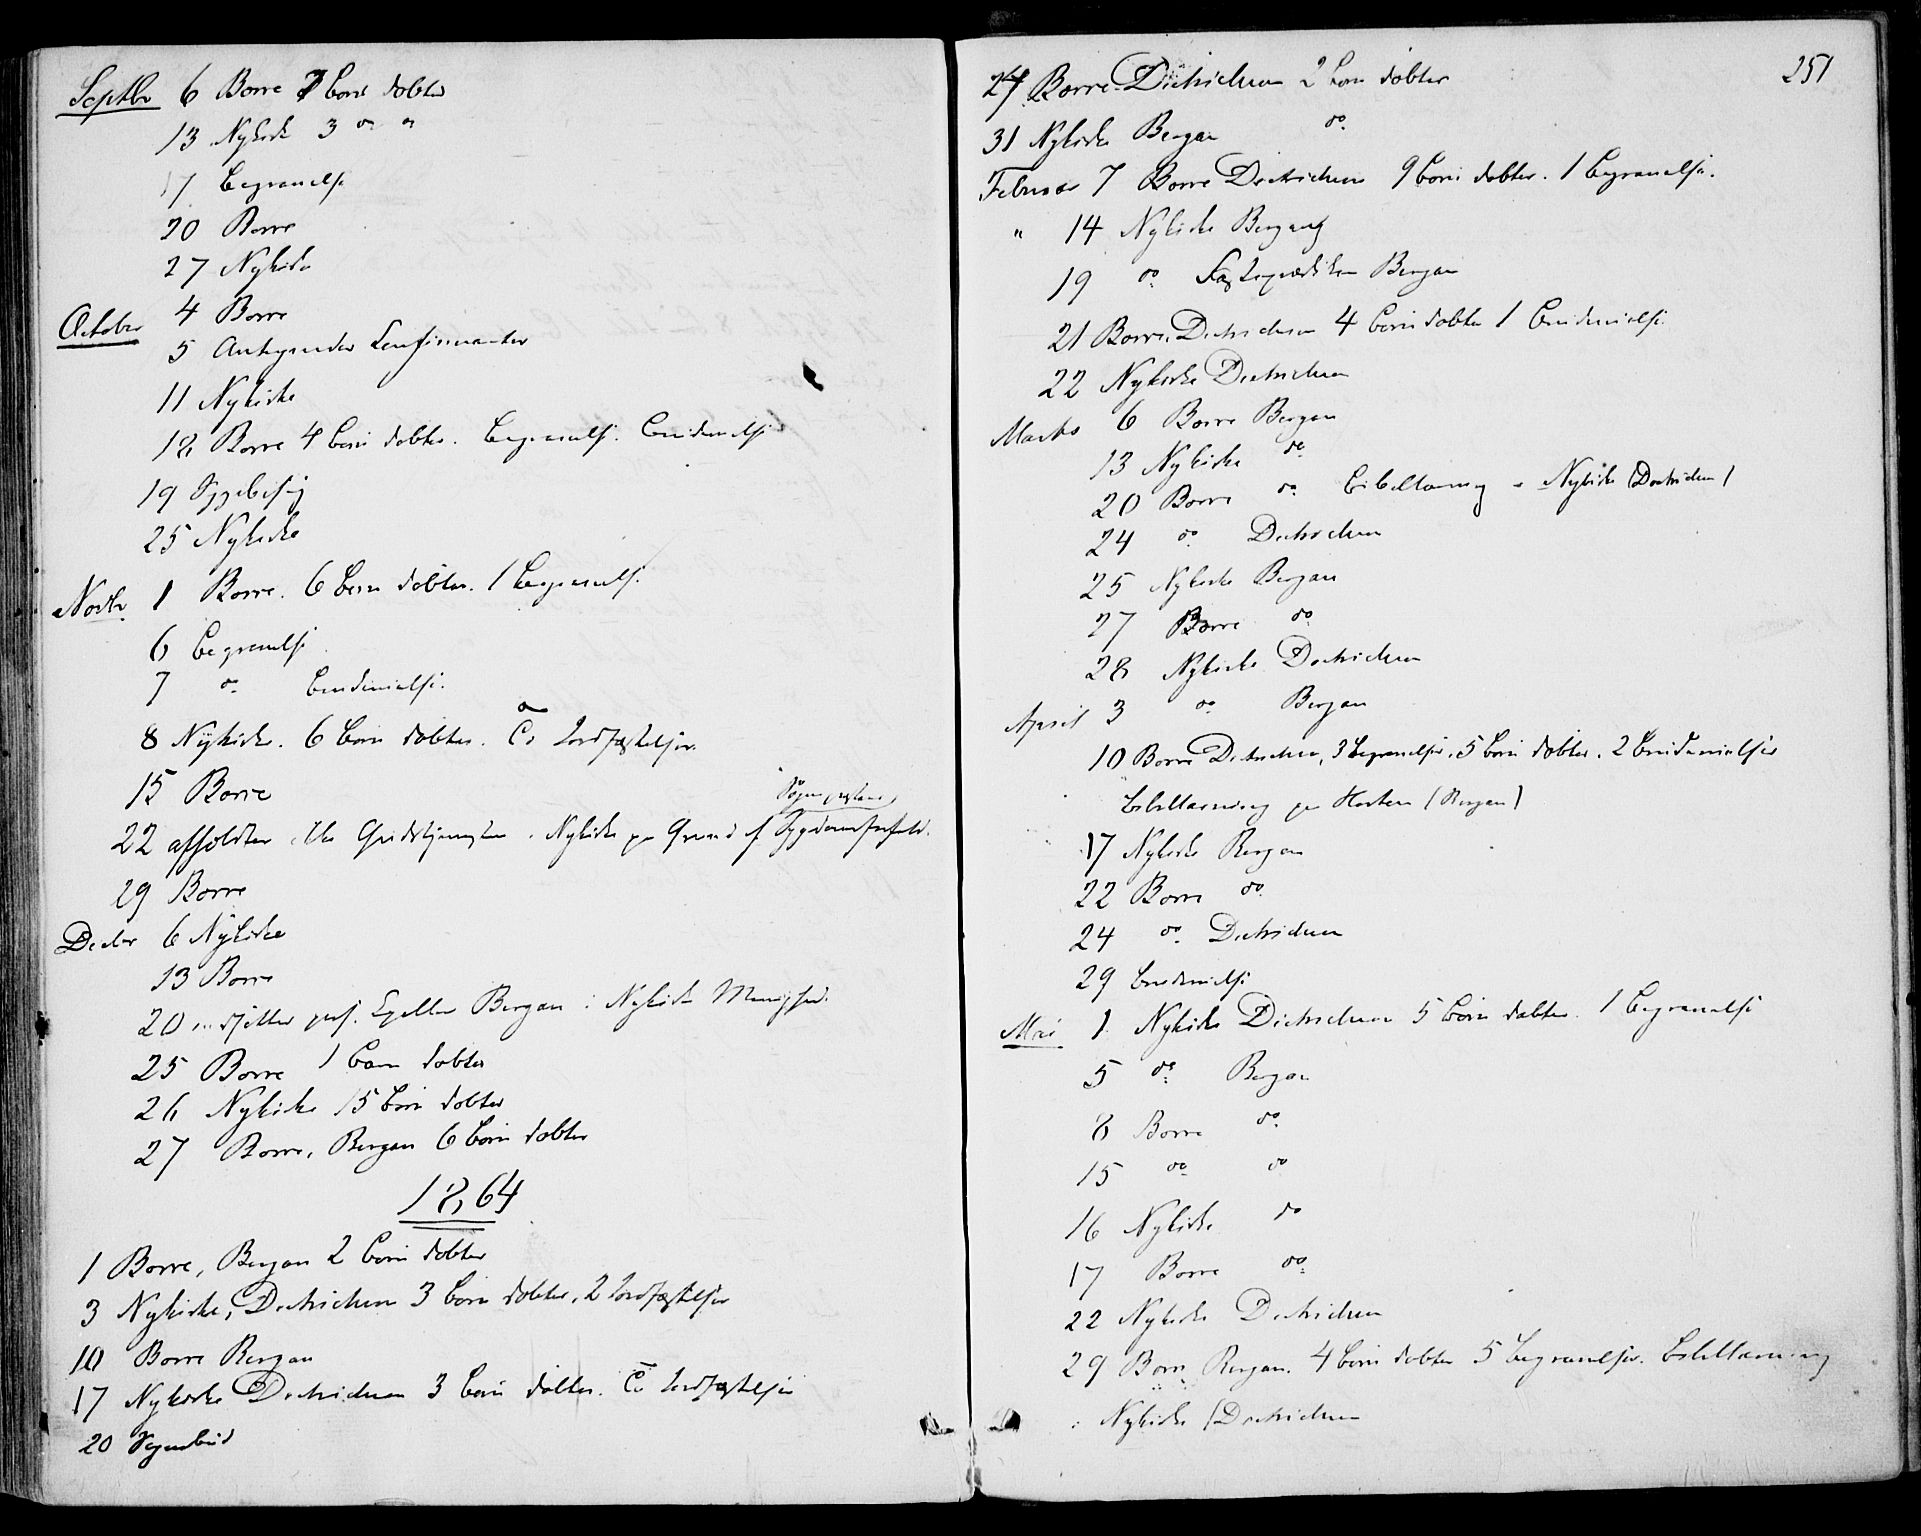 Septbr 6 Borre 7 børn døbte
13 Nykirke 3 do do
17 begravelse
20 Borre
27 Nykirke
October 4 Borre
5 Antegnede Confirmanter
11 Nykirke
18 Borre 4 børn døbte. begravelse.
19 Sygebesøg
25 Nykirke
Novbr. 1 Borre. 6 børn døbte. 1 begravelse.
6 begravelse
7 do
8 Nykirke. 6 børn døbte. Jordfæstelser.
15 Borre
Sognepræstens
22 afholdtes ikke Gudstjeneste i Nykirke pa Grund af Sygdomsforfald.
29 Borre
Decbr 6 Nykirke
13 Borre
20 indsættes pers. Capellan Bergan i Nykirke Menighed.
25 Borre 1 barn døbtes
26 Nykirke 15 børn døbtes
27 Borre, Bergan 6 børn døbtes
1864
1 Borre, Bergan 2 børn døbtes
3 Nykirke, Dietrichson 3 børn døbtes, 2 Jordfæstelser
10 Borre Bergan
17 Nykirke Dietrichson 3 børn døbtes. Jordfæstelser
20 Sognebud
251
24 Borre Dietrichson 2 børn døbtes
31 Nykirke Bergan do
Februar 7 Borre Dietrichson 9 børn døbtes. 1 begravelse.
" 14 Nykirke Bergan
19 do Fasteprædiken Bergan
21 Borre Dietrichson 4 børn døbte 1
22 Nykirke Dietrichson
Marts 6 Borre Bergan
13 Nykirke do
20 Borre do Bibellæsning i Nykirke (Dietrichson)
24 do Dietrichson
25 Nykirke Bergan
27 Borre do
28 Nykirke Dietrichson
April 3 do Bergan
10 Borre Dietrichson, 3 begravelser, 5 børn døbtes. 2
Bibellæsning pa Horten (Bergan)
17 Nykirke Bergan
22 Borre do
24 do Dietrichson
29
Mai 1 Nykirke Dietrichson 5 børn døbtes. 1 begravelse
5 do Bergan
8 Borre do
15 do do
16 Nykirke do
17 Borre do
22 Nykirke Dietrichson
29 Borre Bergan. 4 børn døbtes 5 begravelser. Bibellæsning
i Nykirke (Dietrichson